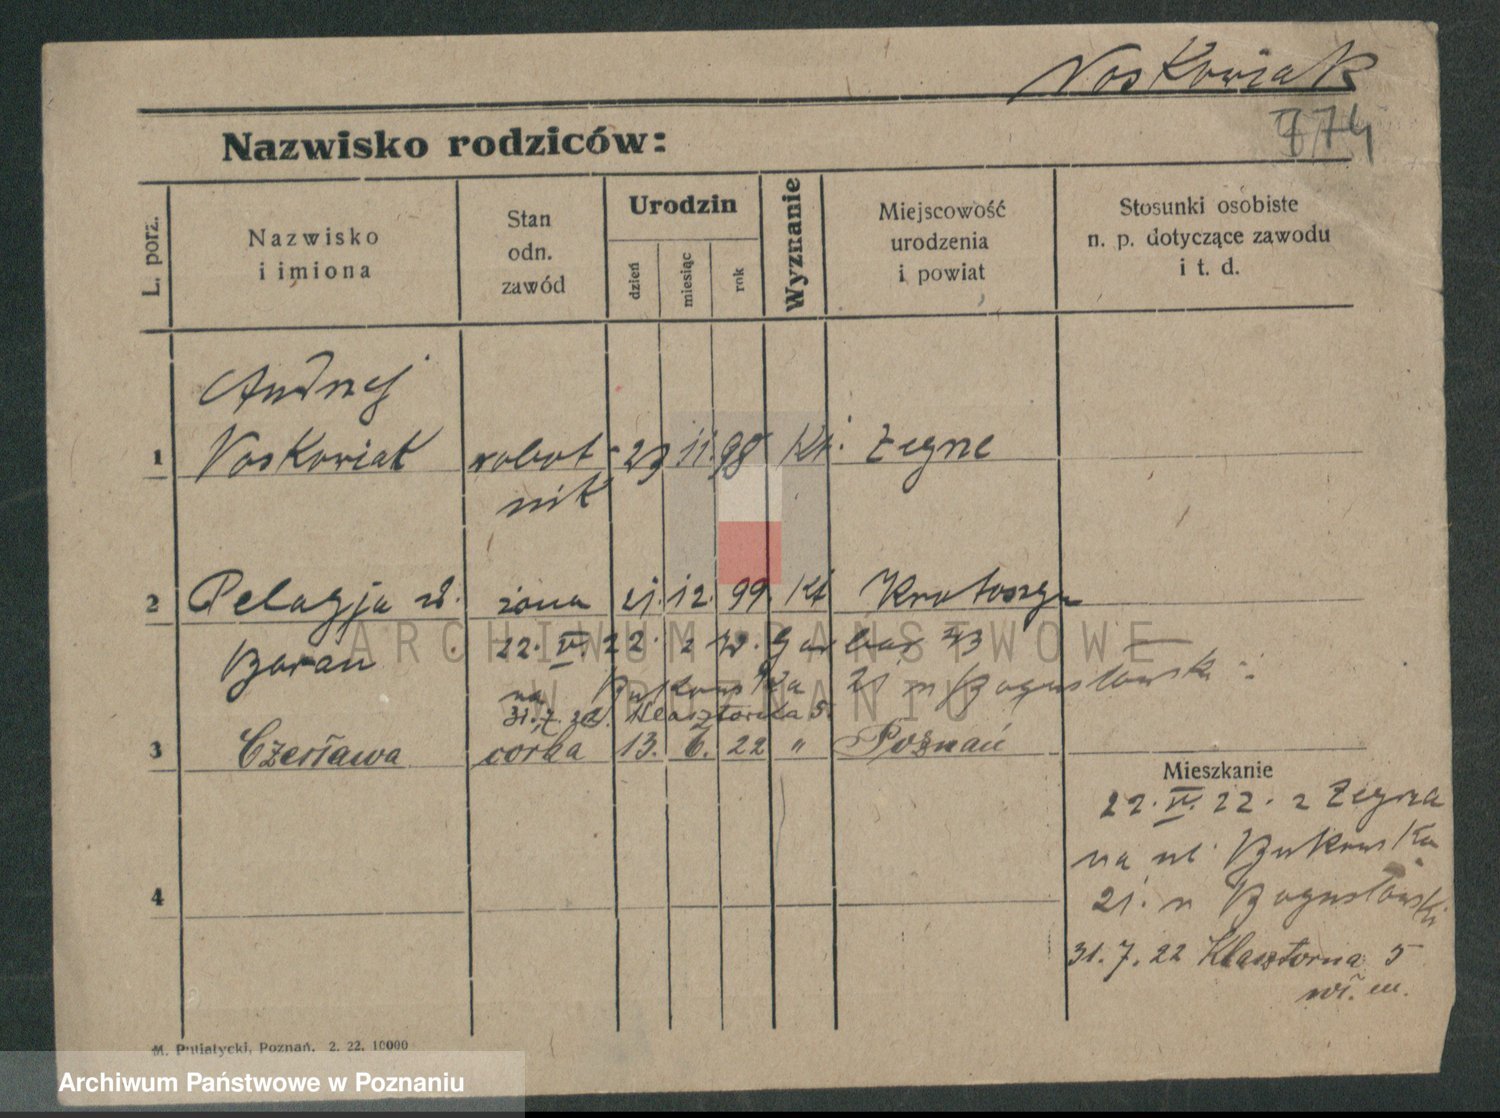 Noskowiak
774
Nazwisko rodziców:
L. porz.
Nazwisko
i imiona
Stan
odn.
zawód
Urodzin
dzień
miesiąc
rok
Wyznanie
Miejscowość
urodzenia
i powiat
Stosunki osobiste
n. p. dotyczące zawodu
i t. d.
Andrzej
1 Noskowiak robot- 23 11. 98 Kt. Żegrze
nik
2 Pelagja z d. żona 21. 12. 99. Kt Krotoszyn
Baran 22. IV. 22. z W. Garbar 43
na Bukowska 21 m Bogusławski
31.7.22. Klasztorna 5.
3 Czesława córka 13. 6. 22 " Poznań
Mieszkanie
22. IV. 22. z Żegrza
na ul Bukowska
21. m Bogusławski
31. 7. 22 Klasztorna 5
wł. m.
4
M. Putiatycki, Poznań. 2. 22. 10000
ARCHIWUM PAŃSTWOWE
W POZNANIU
Archiwum Państwowe w Poznaniu